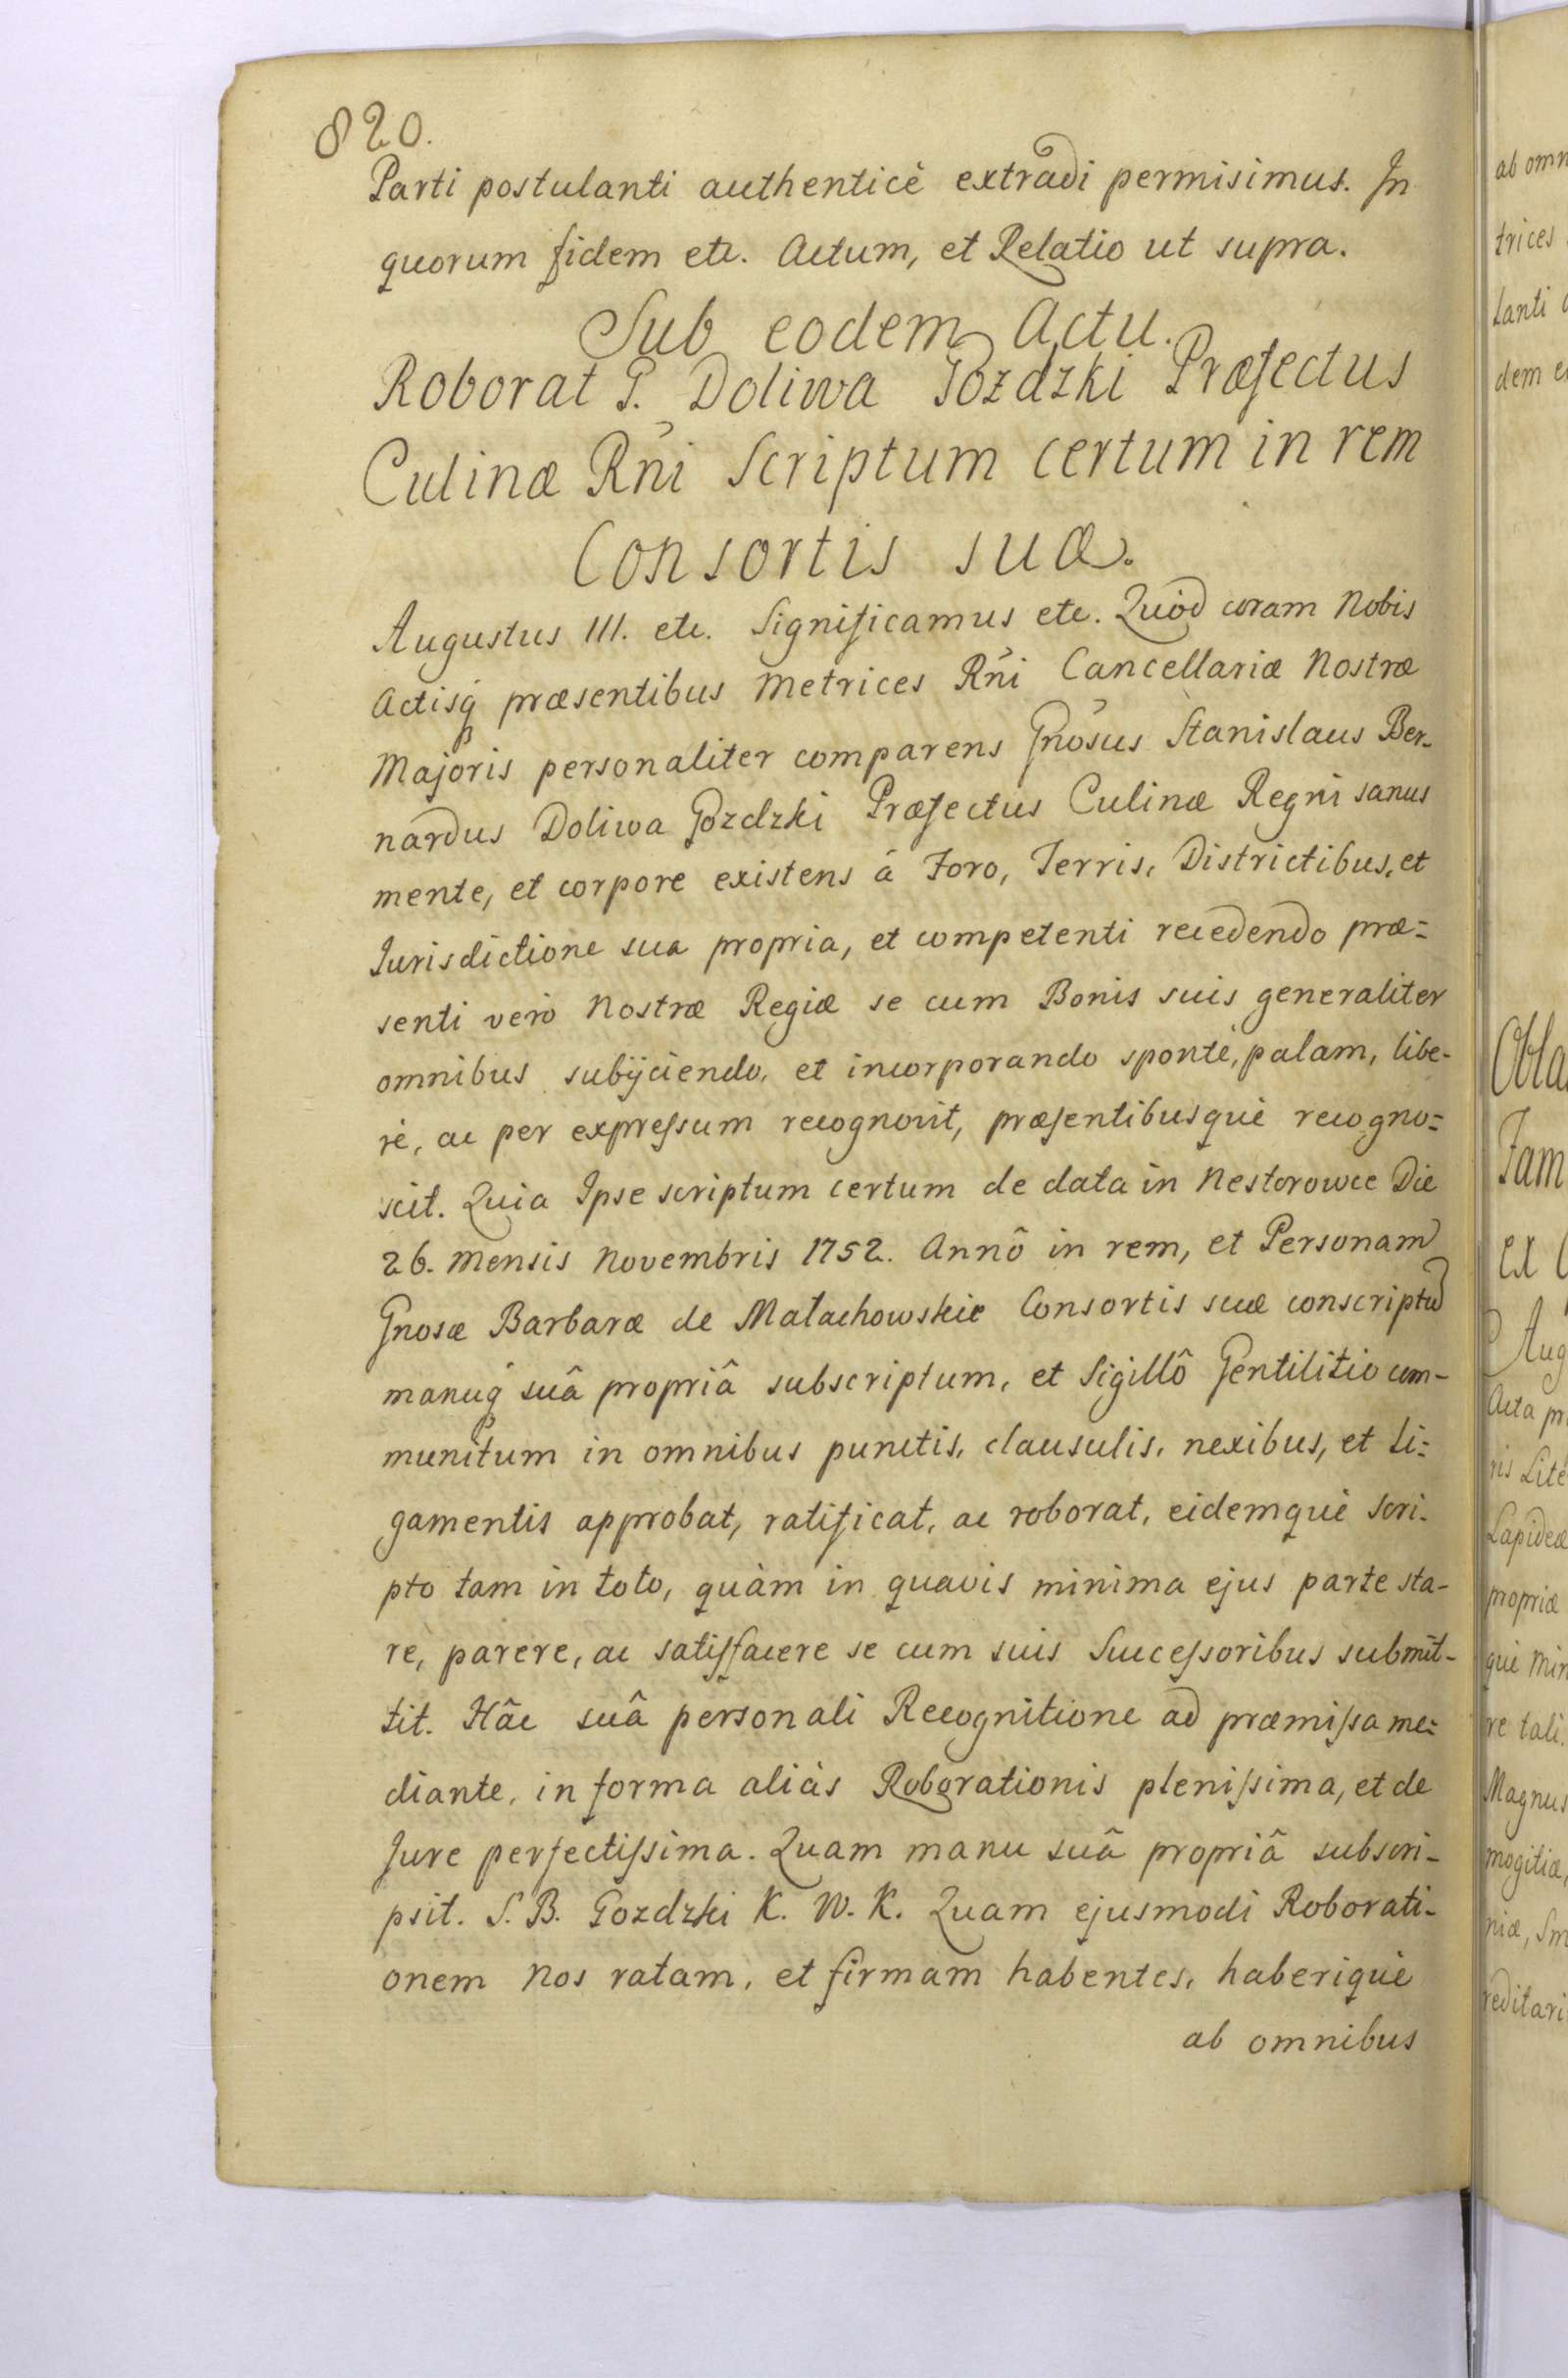 820.
Parti postulanti authenticè extradi permisimus. In
quorum fidem etc. Actum, et Relatio ut supra.
Sub eodem Actu.
Roborat G. Doliwa Gozdzki Præfectus
Culinæ Rñi Scriptum certum in rem
Consortis suæ.
Augustus III. etc. Significamus etc. Quòd coram Nobis
Actisq præsentibus Metrices Rñi Cancellariæ Nostræ
Majoris personaliter comparens Gñosus Stanislaus Ber-
nardus Doliwa Gozdzki Præfectus Culinæ Regni sanus
mente, et corpore existens á Foro, Terris, Districtibus, et
Jurisdictione sua propria, et competenti recedendo præ=
senti verò Nostræ Regiæ se cum Bonis suis generaliter
omnibus subijciendo, et incorporando spontè, palam, libe-
rè, ac per expressum recognovit, præsentibusquè recogno=
scit. Quia Ipse scriptum certum de data in Nestorowce Die
26. Mensis Novembris 1752. Annô in rem, et Personam
Gnosæ Barbaræ de Małachowskie Consortis suæ conscriptũ
manuq suâ propriâ subscriptum, et Sigillô Gentilitio com-
munitum in omnibus punctis, clausulis, nexibus, et li=
gamentis approbat, ratificat, ac roborat, eidemquè scri-
pto tam in toto, quàm in quavis minima ejus parte sta-
re, parere, ac satisfacere se cum suis Successoribus submit-
tit. Hâc suâ personali Recognitione ad præmissa me=
diante, in forma aliàs Roborationis plenissima, et de
Jure perfectissima. Quam manu suâ propriâ subscri-
psit. S. B. Gozdzki K. W. K. Quam ejusmodi Roborati-
onem Nos ratam, et firmam habentes, haberiquè
ab omnibus
ab omn
trices
lanti
dem
Obla
Jam
ex
Aug
Acta pr
ris Lite
Lapideæ
propriæ
què Min
re tali.
Magnus
mogitiæ,
niæ, Sm
reditari